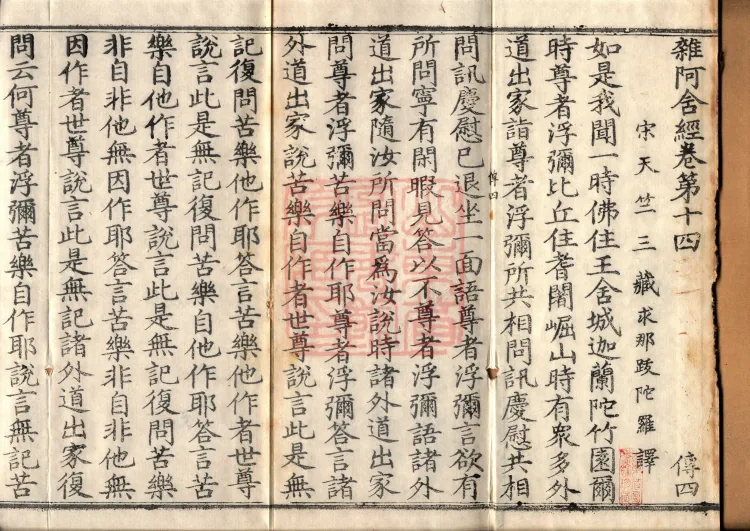 雜阿含經卷第十四 傳四
宋天竺三藏求那跋陀羅譯
如是我聞一時佛住王舍城迦蘭陀竹園爾
時尊者浮彌比丘住耆闍崛山時有衆多外
道出家詣尊者浮彌所共相問訊慶慰共相
問訊慶慰已退坐一面語尊者浮彌言欲有
所問寧有閑暇見答以不尊者浮彌語諸外
道出家隨汝所問當爲汝說時諸外道出家
問尊者浮彌苦樂自作耶尊者浮彌答言諸
外道出家說苦樂自作者世尊說言此是無
記復問苦樂他作耶答言苦樂他作者世尊
說言此是無記復問苦樂自他作耶答言苦
樂自他作者世尊說言此是無記復問苦樂
非自非他無因作耶答言苦樂非自非他無
因作者世尊說言此是無記諸外道出家復
問云何尊者浮彌苦樂自作耶說言無記苦